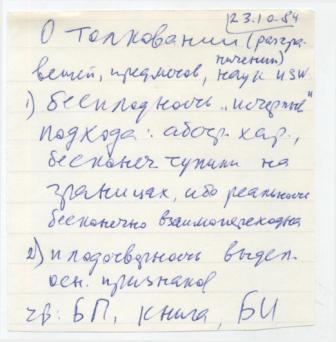 23.10.84
О Толковании (разгра-
ничении)
вещей, предметов, наук изм
1) бесплодность "исчерпыв"
подхода: абстр. хар.,
бесконеч тупики на
границах, ибо реальность
бесконечно взаимопереходна
2) плодотворность выдел.
осн. признаков
ср: БП, книга, БИ